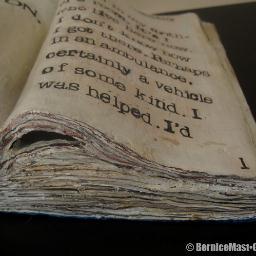 ON
I don't know how
I got there. Perhaps
in an ambulance,
certainly a vehicle
of some kind. I
was helped. I'd
1
© BerniceMast